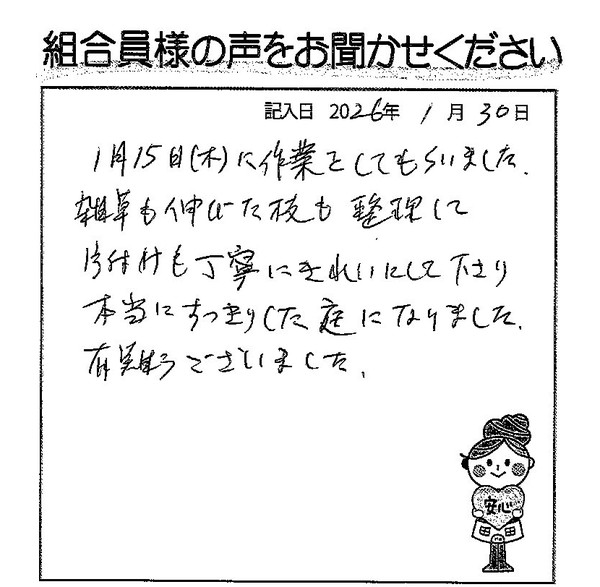 組合員様の声をお聞かせください
記入日 2026年 1月30日
1月15日(木)に作業をしてもらいました。
雑草も伸びた枝も整理して
片付けも丁寧にきれいにして下さり
本当にすっきりした庭になりました。
有難うございました。
安心